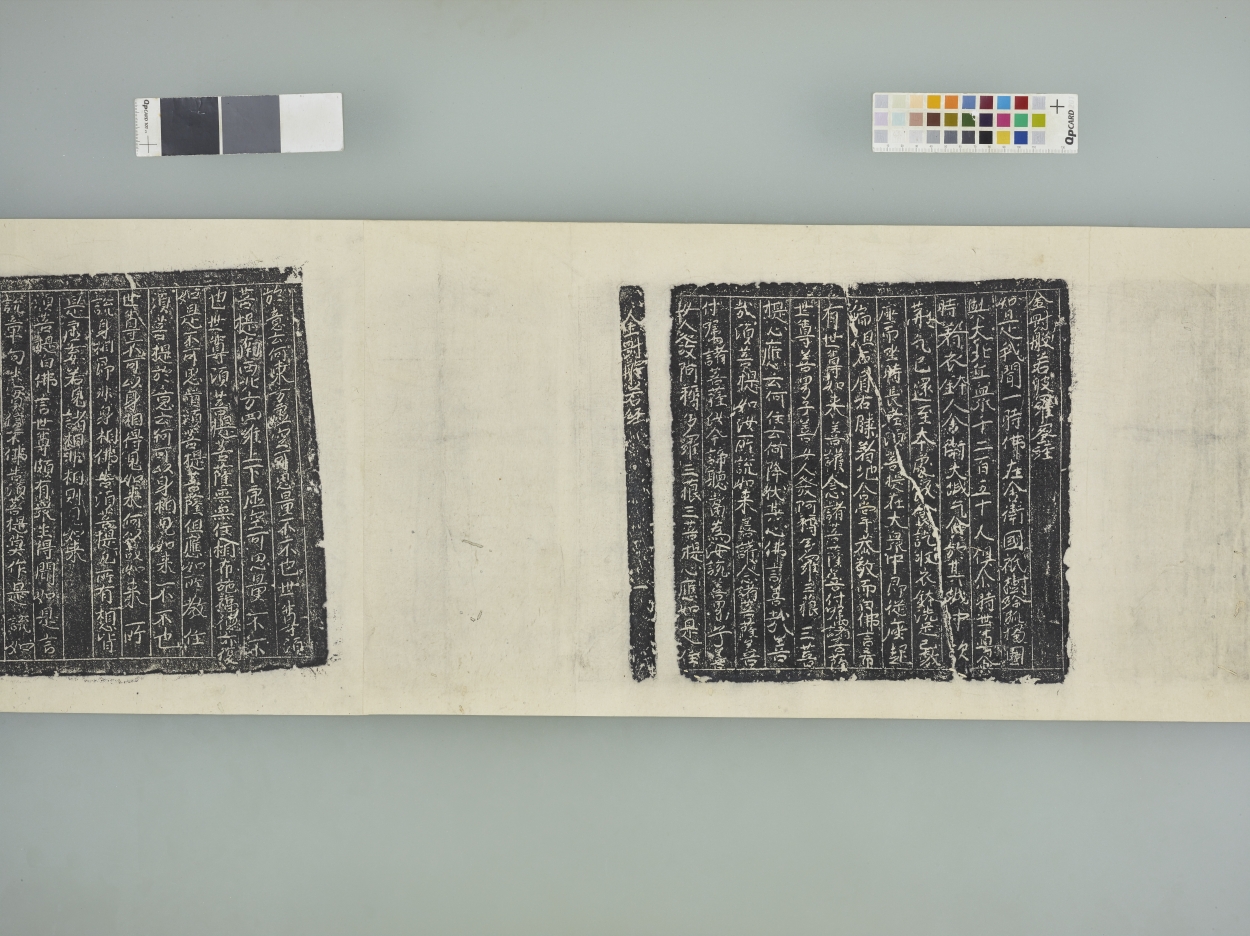 QPCARD
QPCARD
金剛般若波羅蜜經
如是我聞一時佛在舍衛國祇樹給孤獨園
與大比丘眾千二百五十人俱尒時世尊食
時著衣持鉢入舍衛大城乞食於其城中次
第乞已還至本處飯食訖收衣鉢洗足已敷
座而坐時長老須菩提在大眾中即從座起
偏袒右肩右膝著地合掌恭敬而白佛言希
有世尊如來善護念諸菩薩善付囑諸菩薩
世尊善男子善女人發阿耨多羅三藐三菩
提心應云何住云何降伏其心佛言善哉善
哉須菩提如汝所說如來善護念諸菩薩善
付囑諸菩薩汝今諦聽當為汝說善男子善
女人發阿耨多羅三藐三菩提心應如是住
金剛般若經 一
於意云何東方虛空可思量不不也世尊須
菩提南西北方四維上下虛空可思量不不
也世尊須菩提菩薩無住相布施福德亦復
如是不可思量須菩提菩薩但應如所教住
須菩提於意云何可以身相見如來不不也
世尊不可以身相得見如來何以故如來所
說身相即非身相佛告須菩提凡所有相皆
是虛妄若見諸相非相則見如來
須菩提白佛言世尊頗有眾生得聞如是言
說章句生實信不佛告須菩提莫作是說如